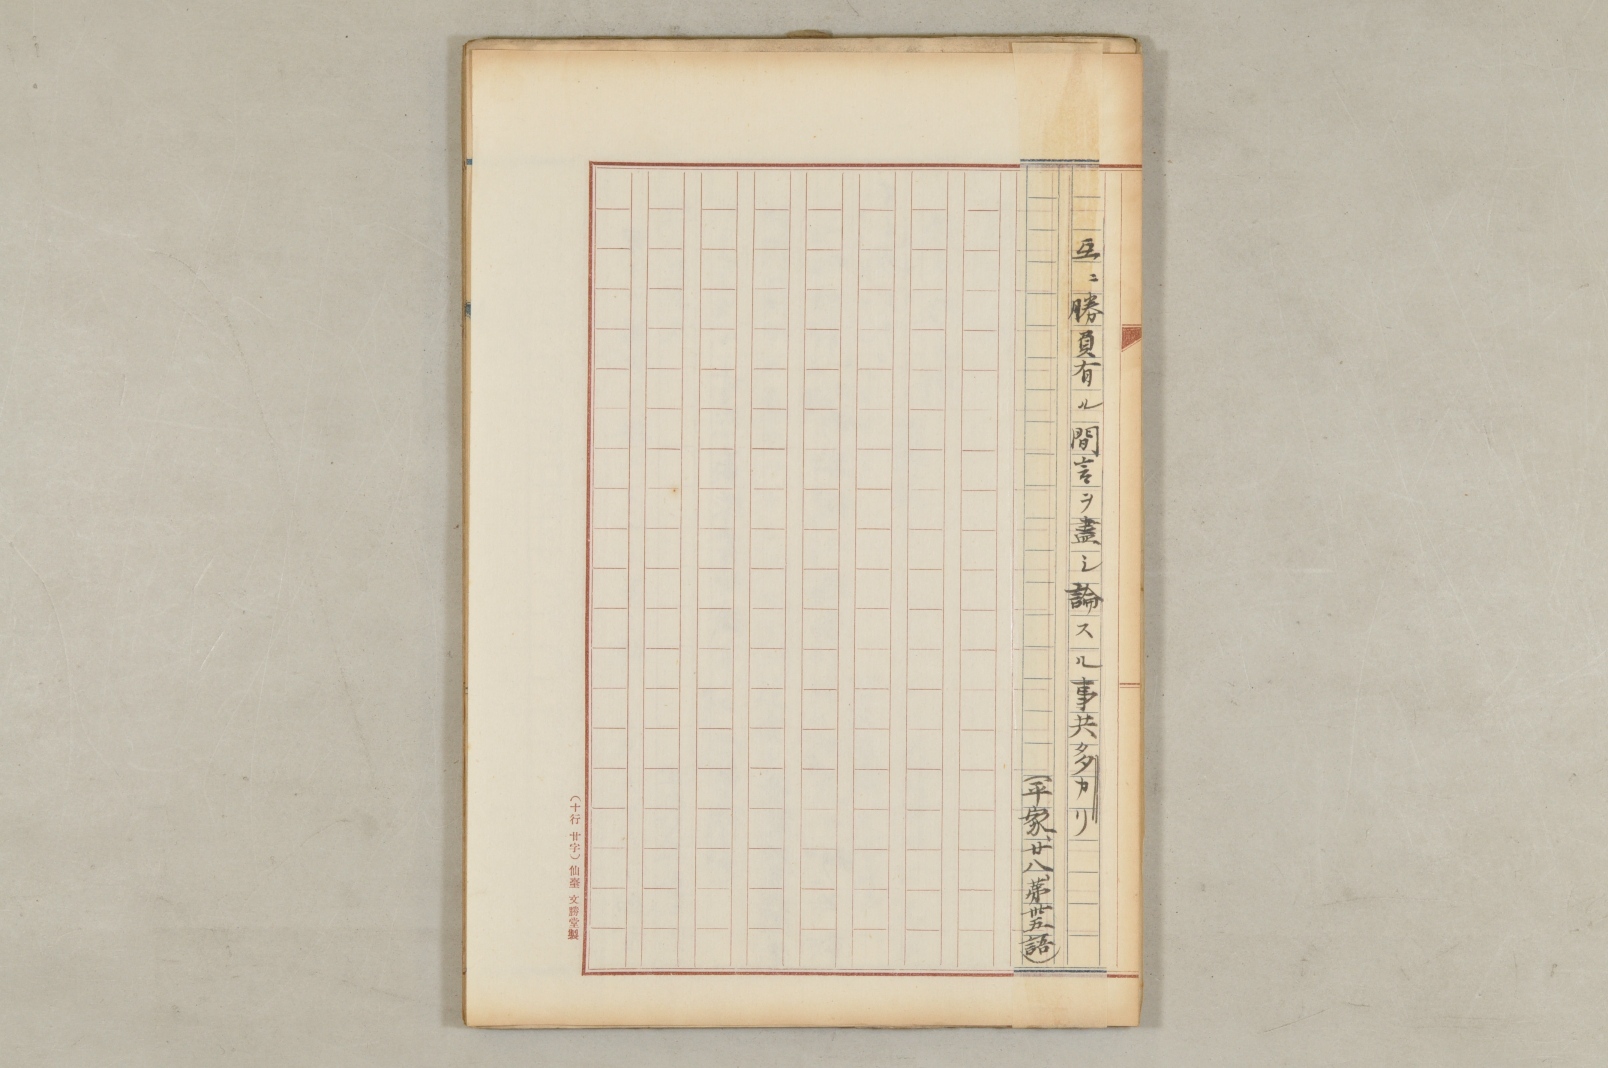 互ニ勝負有ル間言ヲ盡シ論スル事共多カリ
(平家、廿八、第卅五語)
(十行 廿字) 仙臺 文勝堂製